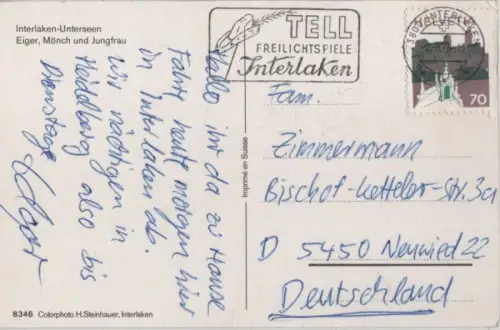 Interlaken-Unterseen
Eiger, Mönch und Jungfrau
TELL
FREILICHTSPIELE
Interlaken
3800 INTERLAKEN
HELVETIA
70
Hallo ihr da zu Hause
Fahre heute morgen hier
in Interlaken ab.
Wir nächtigen in
also bis
Dienstag
Imprimé en Suisse
Fam.
Zimmermann
Bischof-Ketteler-Str. 3a
D 5450 Neuwied 22
Deutschland
8346 Colorphoto H.Steinhauer, Interlaken